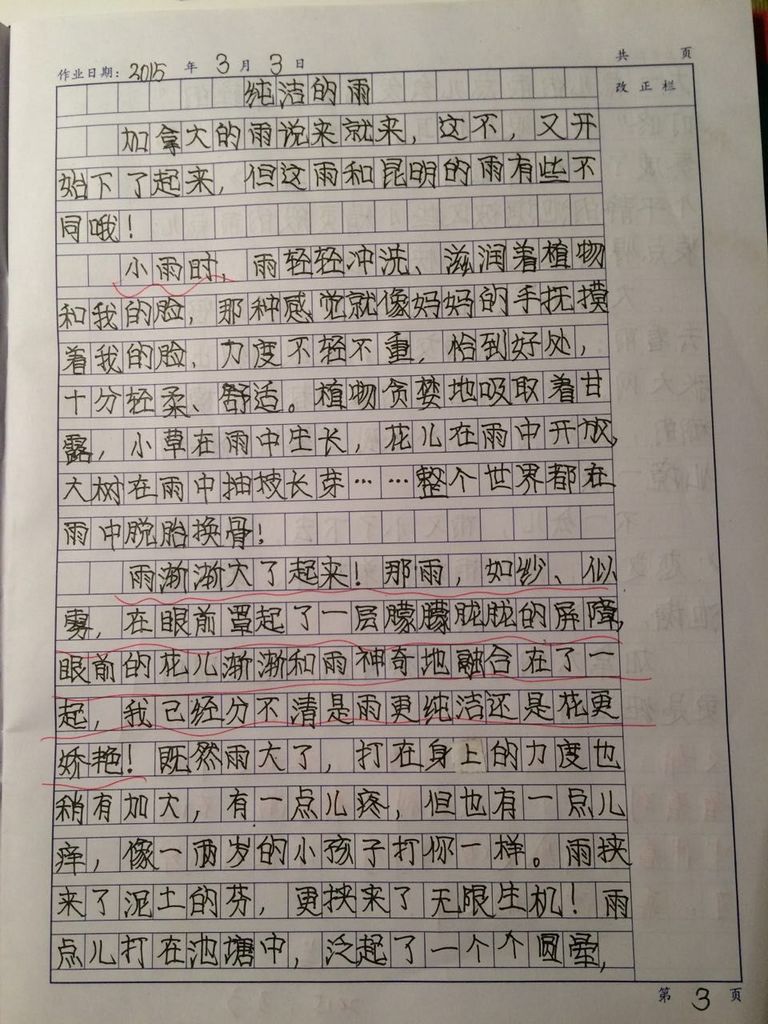 作业日期：2015 年 3 月 3 日 共 页
纯洁的雨 改正栏
加拿大的雨说来就来，这不，又开
始下了起来，但这雨和昆明的雨有些不
同哦！
小雨时，雨轻轻冲洗、滋润着植物
和我的脸，那种感觉就像妈妈的手抚摸
着我的脸，力度不轻不重，恰到好处，
十分轻柔、舒适。植物贪婪地吸取着甘
露，小草在雨中生长，花儿在雨中开放，
大树在雨中抽枝长芽……整个世界都在
雨中脱胎换骨！
雨渐渐大了起来！那雨，如纱、似
雾，在眼前罩起了一层朦朦胧胧的屏障，
眼前的花儿渐渐和雨神奇地融合在了一
起，我已经分不清是雨更纯洁还是花更
娇艳！既然雨大了，打在身上的力度也
稍有加大，有一点儿疼，但也有一点儿
痒，像一两岁的小孩子打你一样。雨挟
来了泥土的芬，更挟来了无限生机！雨
点儿打在池塘中，泛起了一个个圆晕，
第 3 页